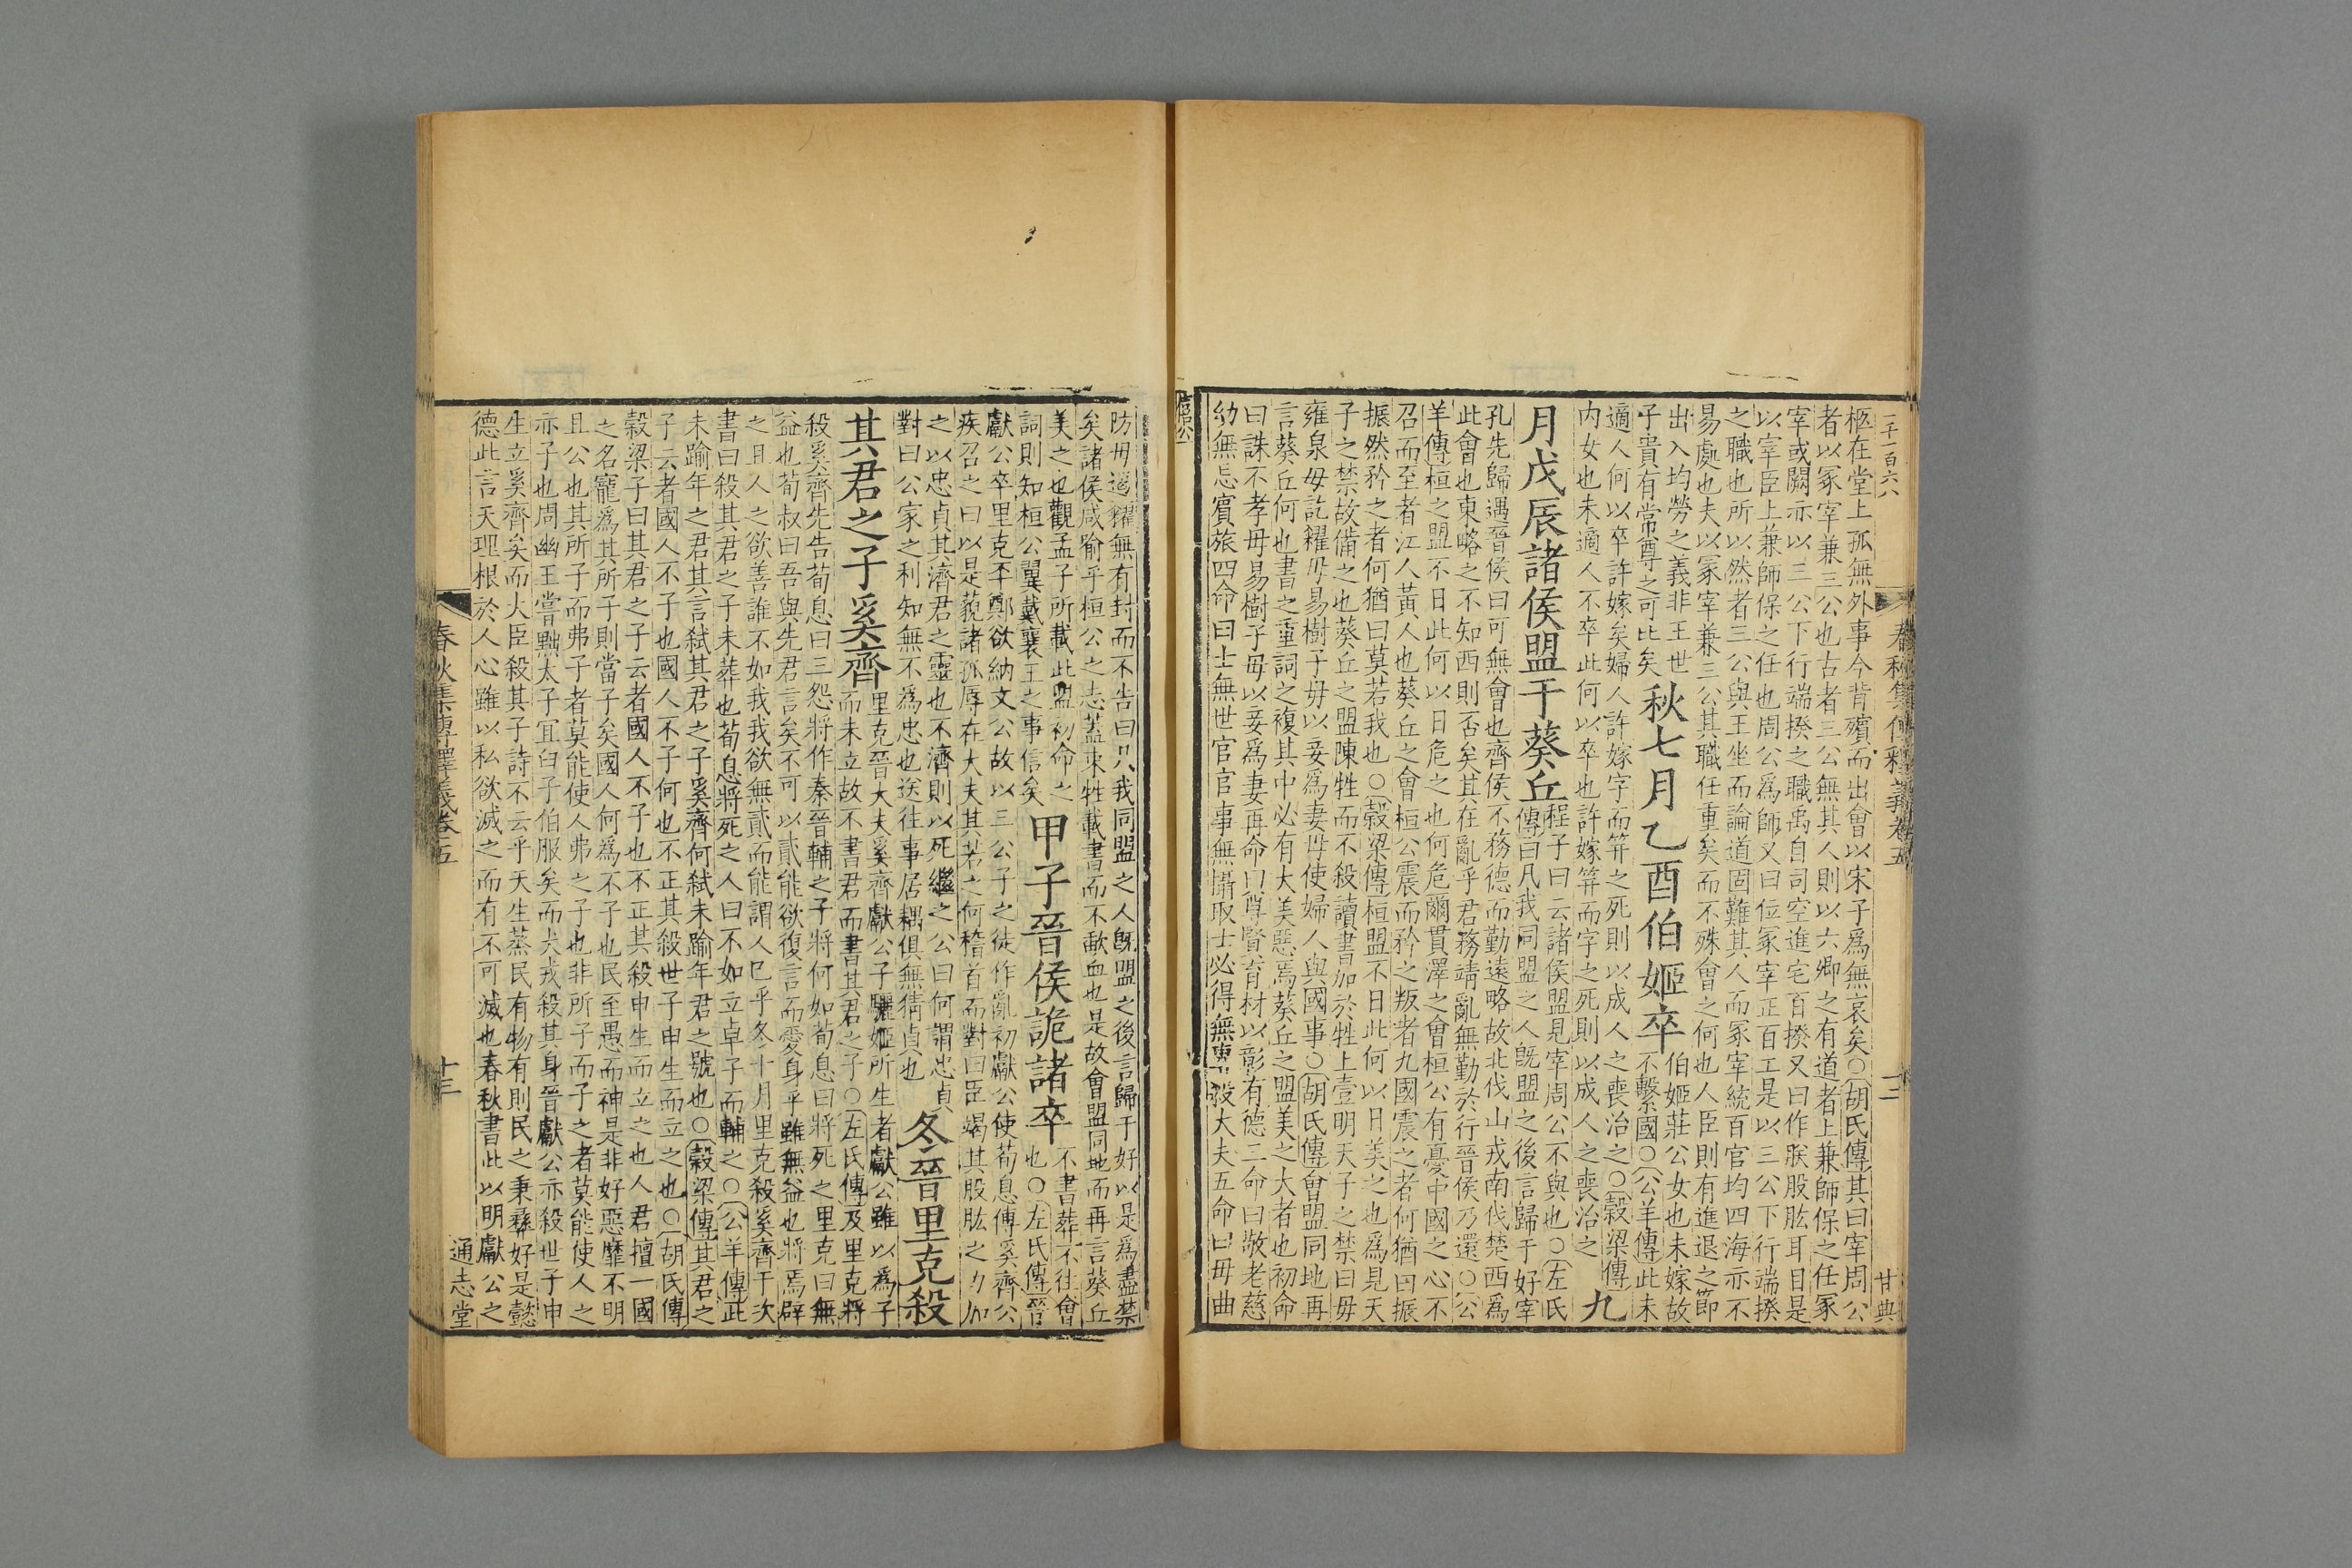 一千一百六八
春秋集傳釋義卷五
十二
甘典
柩在堂上孤無外事今背殯而出會以宋子爲無哀矣○胡氏傳其曰宰周公
者以冢宰兼三公也古者三公無其人則以六卿之有道者上兼師保之任冢
宰或闕亦以三公下行端揆之職禹自司空進宅百揆又曰作朕股肱耳目是
以宰臣上兼師保之任也周公爲師又曰位冢宰正百工是以三公下行端揆
之職也所以然者三公與王坐而論道固難其人而冢宰統百官均四海亦不
易處也夫以冢宰兼三公其職任重矣而不殊會之何也人臣則有進退之節
出入均勞之義非王世
子貴有常尊之可比矣
秋七月乙酉伯姬卒
伯姬莊公女也未嫁故
不繫國○公羊傳此未
適人何以卒許嫁矣婦人許嫁字而笄之死則以成人之喪治之○穀梁傳
内女也未適人不卒此何以卒也許嫁笄而字之死則以成人之喪治之
九
月戊辰諸侯盟于葵丘
程子曰云諸侯盟見宰周公不與也○左氏
傳曰凡我同盟之人既盟之後言歸于好宰
孔先歸遇晉侯曰可無會也齊侯不務德而勤遠略故北伐山戎南伐楚西爲
此會也東略之不知西則否矣其在亂乎君務靖亂無勤於行晉侯乃還○公
羊傳桓之盟不日此何以日危之也何危爾貫澤之會桓公有憂中國之心不
召而至者江人黃人也葵丘之會桓公震而矜之叛者九國震之者何猶曰振
振然矜之者何猶曰莫若我也○穀梁傳桓盟不日此何以日美之也爲見天
子之禁故備之也葵丘之盟陳牲而不殺讀書加於牲上壹明天子之禁曰毋
雍泉毋訖糴毋易樹子毋以妾爲妻毋使婦人與國事○胡氏傳會盟同地再
言葵丘何也書之重詞之複其中必有大美惡焉葵丘之盟美之大者也初命
曰誅不孝毋易樹子毋以妾爲妻再命曰尊賢育材以彰有德三命曰敬老慈
幼無忘賓旅四命曰士無世官官事無攝取士必得無專殺大夫五命曰毋曲
僖公
防毋遏糴無有封而不告曰凡我同盟之人既盟之後言歸于好以是爲盡禁
矣諸侯咸喻乎桓公之志蓋束牲載書而不歃血也是故會盟同地而再言葵丘
美之也觀孟子所載此盟初命之
詞則知桓公翼戴襄王之事信矣
甲子晉侯詭諸卒
不書葬不往會
也○左氏傳晉
獻公卒里克丕鄭欲納文公故以三公子之徒作亂初獻公使荀息傅奚齊公
疾召之曰以是藐諸孤辱在大夫其若之何稽首而對曰臣竭其股肱之力加
之以忠貞其濟君之靈也不濟則以死繼之公曰何謂忠貞
對曰公家之利知無不爲忠也送往事居耦俱無猜貞也
冬晉里克殺
其君之子奚齊
里克晉大夫奚齊獻公子驪姬所生者獻公雖以爲子
而未立故不書君而書其君之子○左氏傳及里克將
殺奚齊先告荀息曰三怨將作秦晉輔之子將何如荀息曰將死之里克曰無
益也荀叔曰吾與先君言矣不可以貳能欲復言而愛身乎雖無益也將焉辟
之且人之欲善誰不如我我欲無貳而能謂人已乎冬十月里克殺奚齊于次
書曰殺其君之子未葬也荀息將死之人曰不如立卓子而輔之○公羊傳此
未踰年之君其言弒其君之子奚齊何弒未踰年君之號也○穀梁傳其君之
子云者國人不子也國人不子何也不正其殺世子申生而立之也○胡氏傳
穀梁子曰其君之子云者國人不子也不正其殺申生而立之也人君擅一國
之名寵爲其所子則當子矣國人何爲不子也民至愚而神是非好惡靡不明
且公也其所子而弗子者莫能使人弗之子也非所子而子之者莫能使人之
亦子也周幽王嘗黜太子宜臼子伯服矣而犬戎殺其身晉獻公亦殺世子申
生立奚齊矣而大臣殺其子詩不云乎天生蒸民有物有則民之秉彞好是懿
德此言天理根於人心雖以私欲滅之而有不可滅也春秋書此以明獻公之
春秋集傳釋義卷五
十三
通志堂